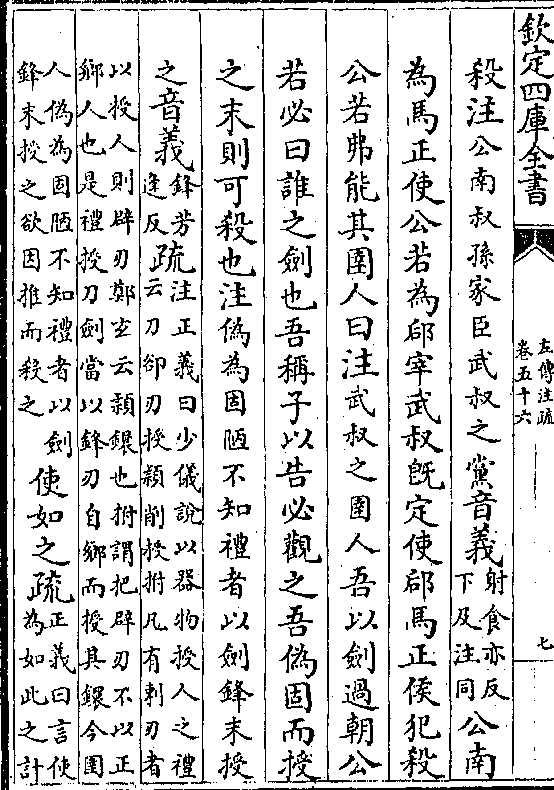 欽定四庫全書
左傳注疏
卷五十六
七
殺注公南叔孫家臣武叔之黨音義射食亦反
下及注同公南
為馬正使公若為郈宰武叔既定使郈馬正侯犯殺
公若弗能其圉人曰注武叔之圉人吾以劍過朝公
若必曰誰之劍也吾稱子以告必觀之吾偽固而授
之末則可殺也注偽為固陋不知禮者以劍鋒末授
之音義鋒芳
逢反疏注正義曰少儀說以器物授人之禮
云刀卻刃授穎削授拊凡有刺刃者
以授人則辟刃鄭玄云穎鐶也拊謂把辟刃不以正
鄉人也是禮授刀劍當以鋒刃自鄉而授其鐶今圉
人偽為固陋不知禮者以劍
鋒末授之欲因推而殺之使如之疏正義曰言使
為如此之計